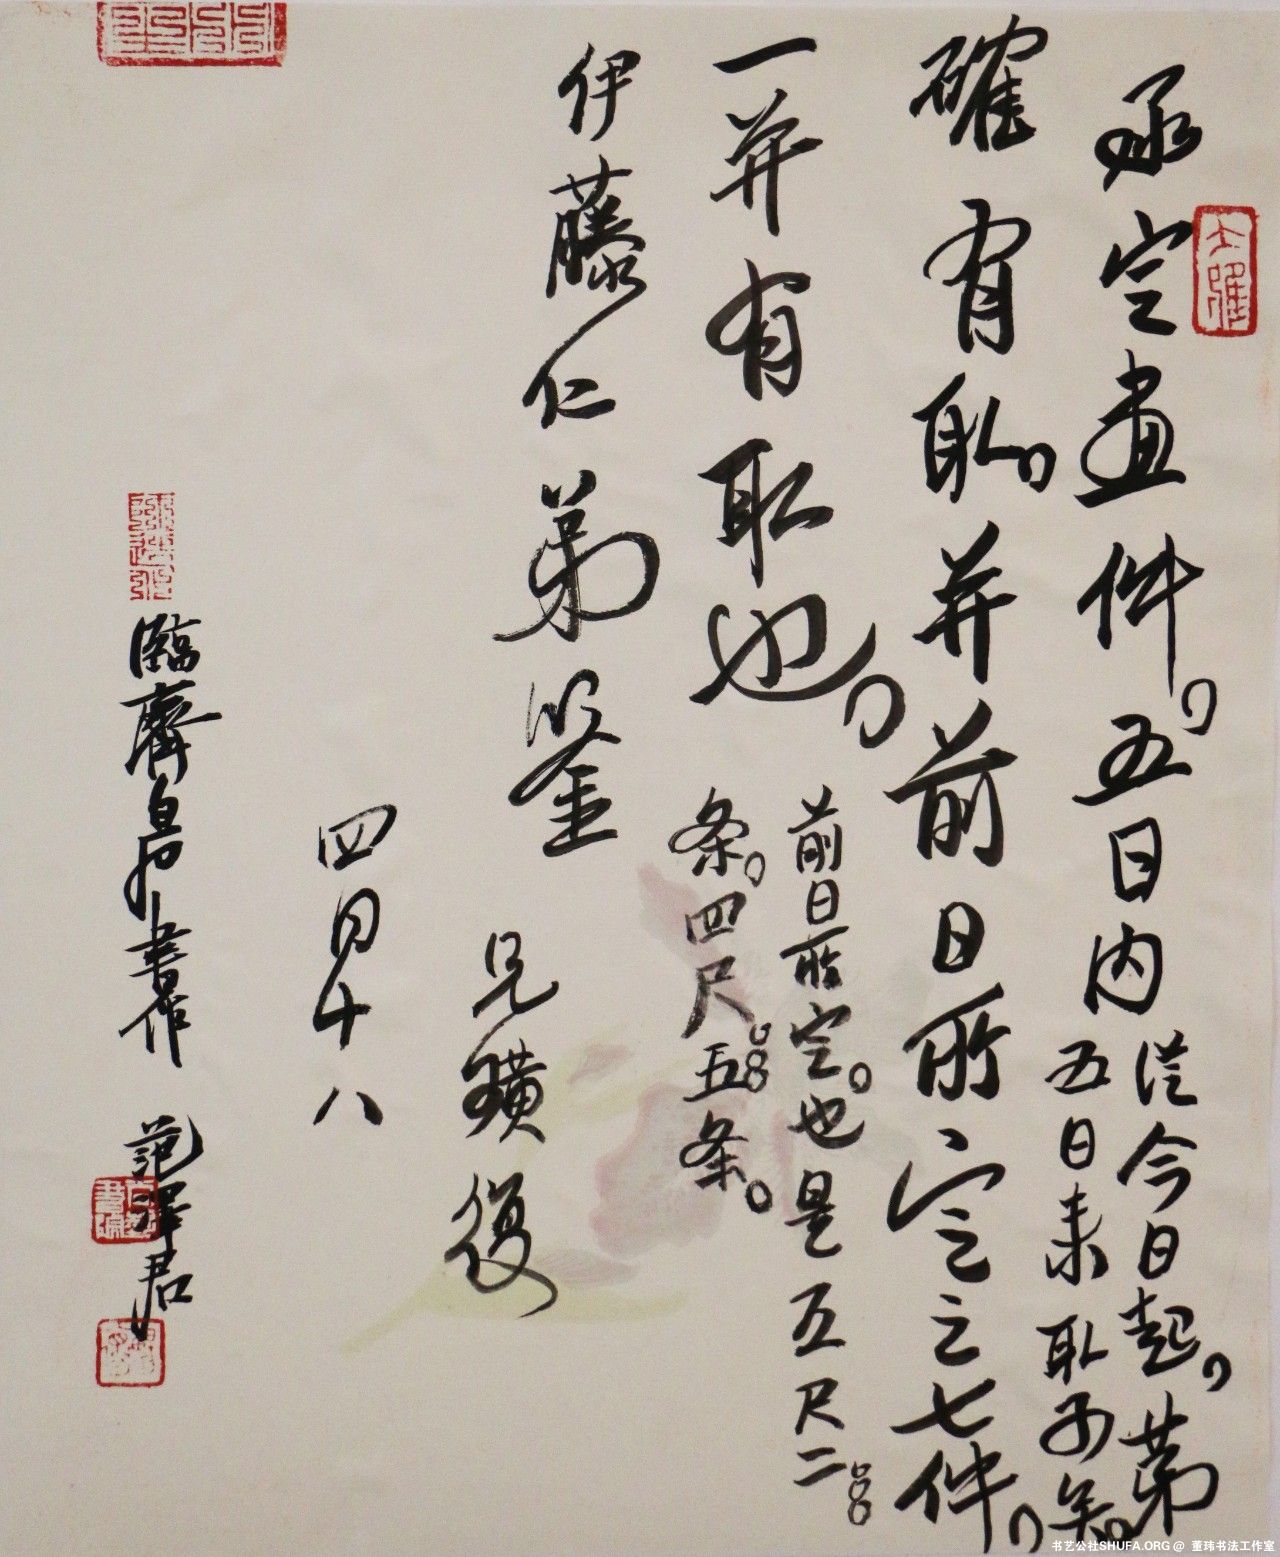 承定畫件。五日内
從今日起。第
五日来取可矣。
確有取。并前日所定之七件。
一并有取也。
前日所定。也是五尺二
条。四尺。五条。
伊藤仁弟鉴
兄璜復
四月十八
臨齊白石書作 范澤君
书艺公社SHUFA.ORG @ 董玮书法工作室